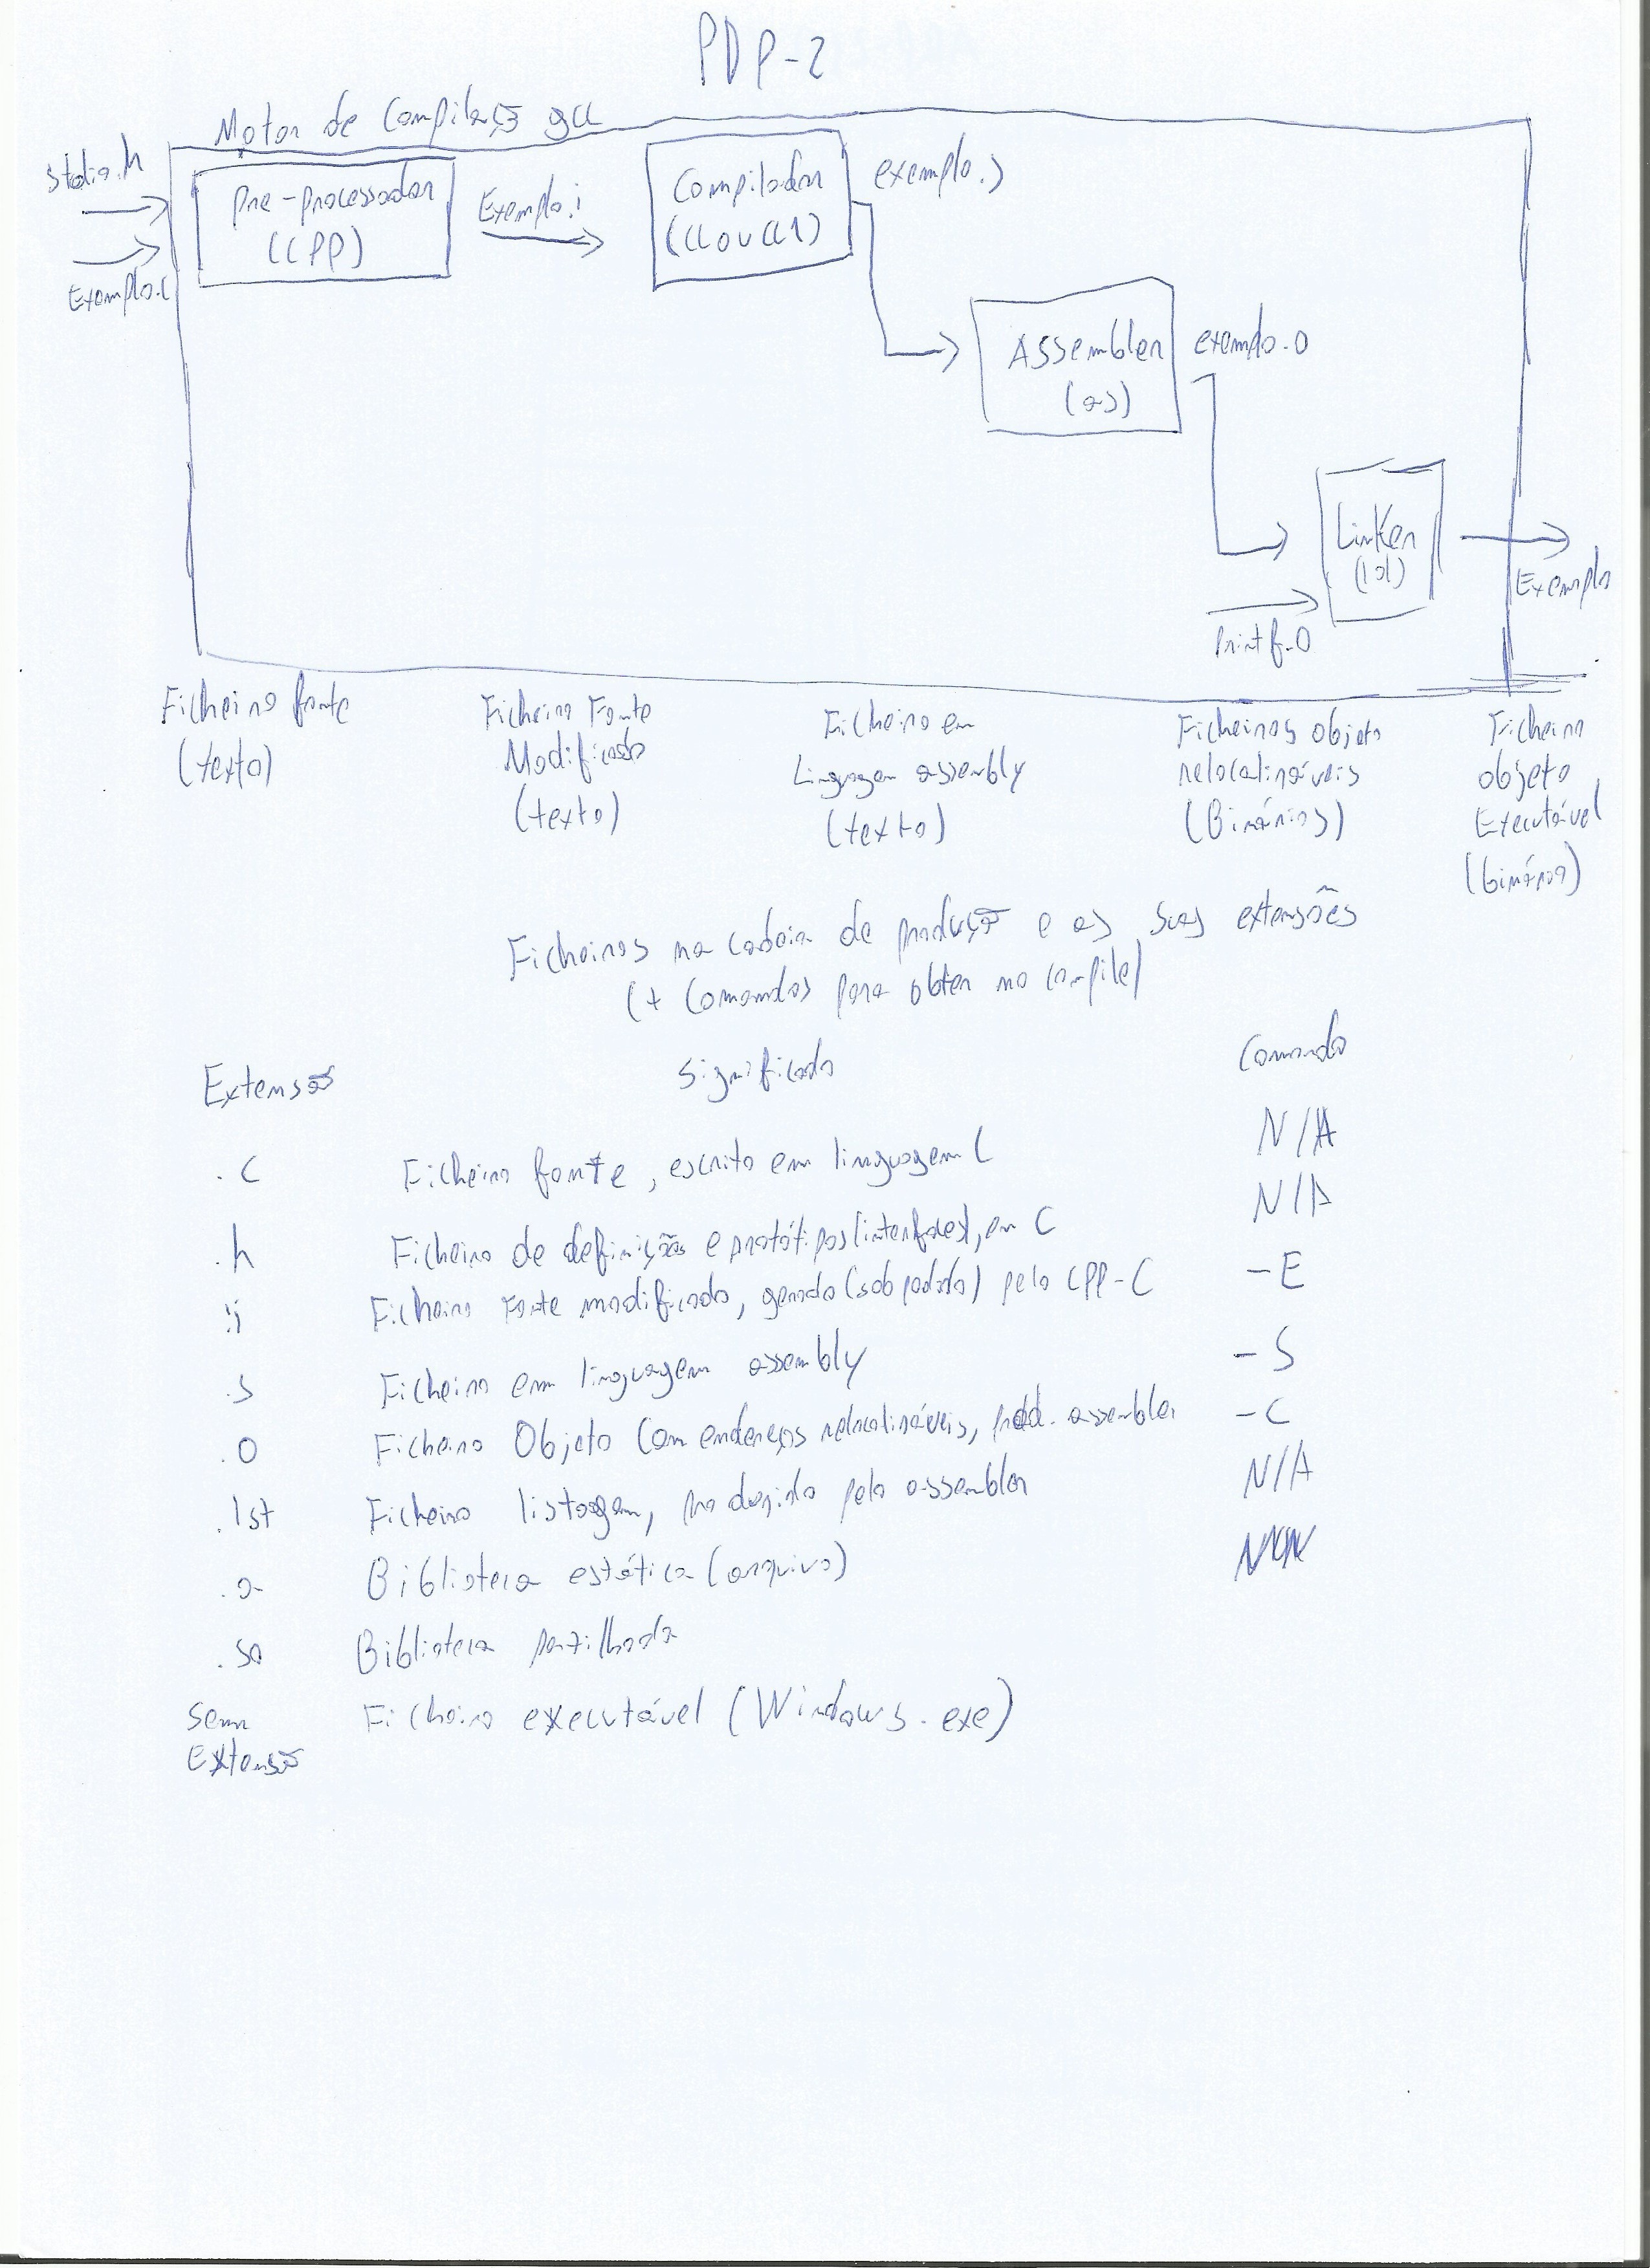 PDP-2
Motor de Compilação gcc
stdio.h
Exemplo.c
Pre-processador
(CPP)
Exemplo.i
Compilador
(cc ou cc1)
exemplo.s
Assembler
(as)
exemplo.o
Linker
(ld)
Printf.o
Exemplo
Ficheiro fonte
(texto)
Ficheiro Fonte
Modificado
(texto)
Ficheiro em
Linguagem assembly
(texto)
Ficheiros objeto
relocalizáveis
(Binários)
Ficheiro
objeto
Executável
(binário)
Ficheiros na cadeia de produção e as suas extensões
(+ Comandos para obter no compile)
Extensão Significado Comando
.c Ficheiro fonte, escrito em linguagem C N/A
.h Ficheiro de definições e protótipos (interfaces), em C N/A
.i Ficheiro Fonte modificado, gerado (sob pedido) pelo CPP-C -E
.s Ficheiro em linguagem assembly -S
.o Ficheiro Objeto Com endereços relocalizáveis, prod. assembler -C
.lst Ficheiro listagem, produzido pelo assembler N/A
.a Biblioteca estática (arquivo)
.so Biblioteca partilhada
Sem Ficheiro executável (Windows .exe)
Extensão